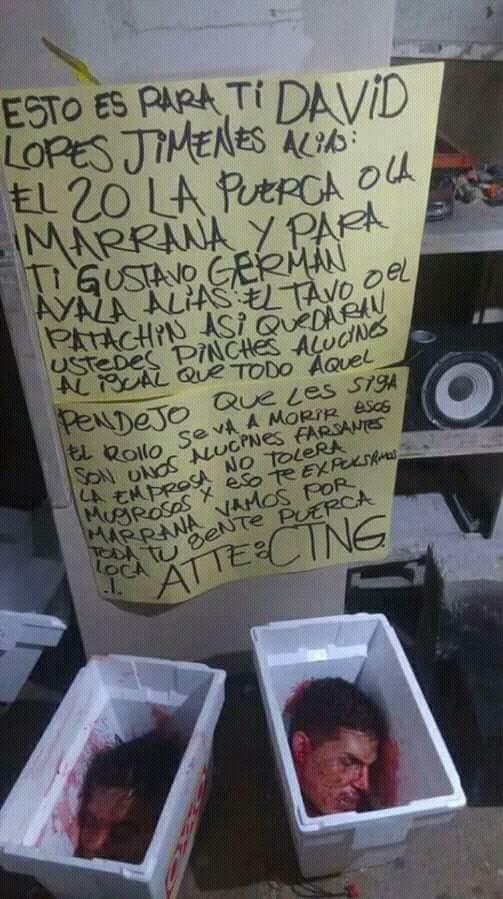 ESTO ES PARA TI DAVID
LOPES JIMENES ALIAS:
EL 20 LA PUERCA O LA
MARRANA Y PARA
TI GUSTAVO GERMAN
AYALA ALIAS: EL TAVO O EL
PATACHIN ASI QUEDARAN
USTEDES PINCHES ALUCINES
AL IGUAL QUE TODO AQUEL
PENDEJO QUE LES SIGA
EL ROLLO SE VA A MORIR ESOS
SON UNOS ALUCINES FARSANTES
LA EMPRESA NO TOLERA
MUGROSOS X ESO TE EXPULSAMOS
MARRANA VAMOS POR
TODA TU GENTE PUERCA
LOCA ATTE: CTNG